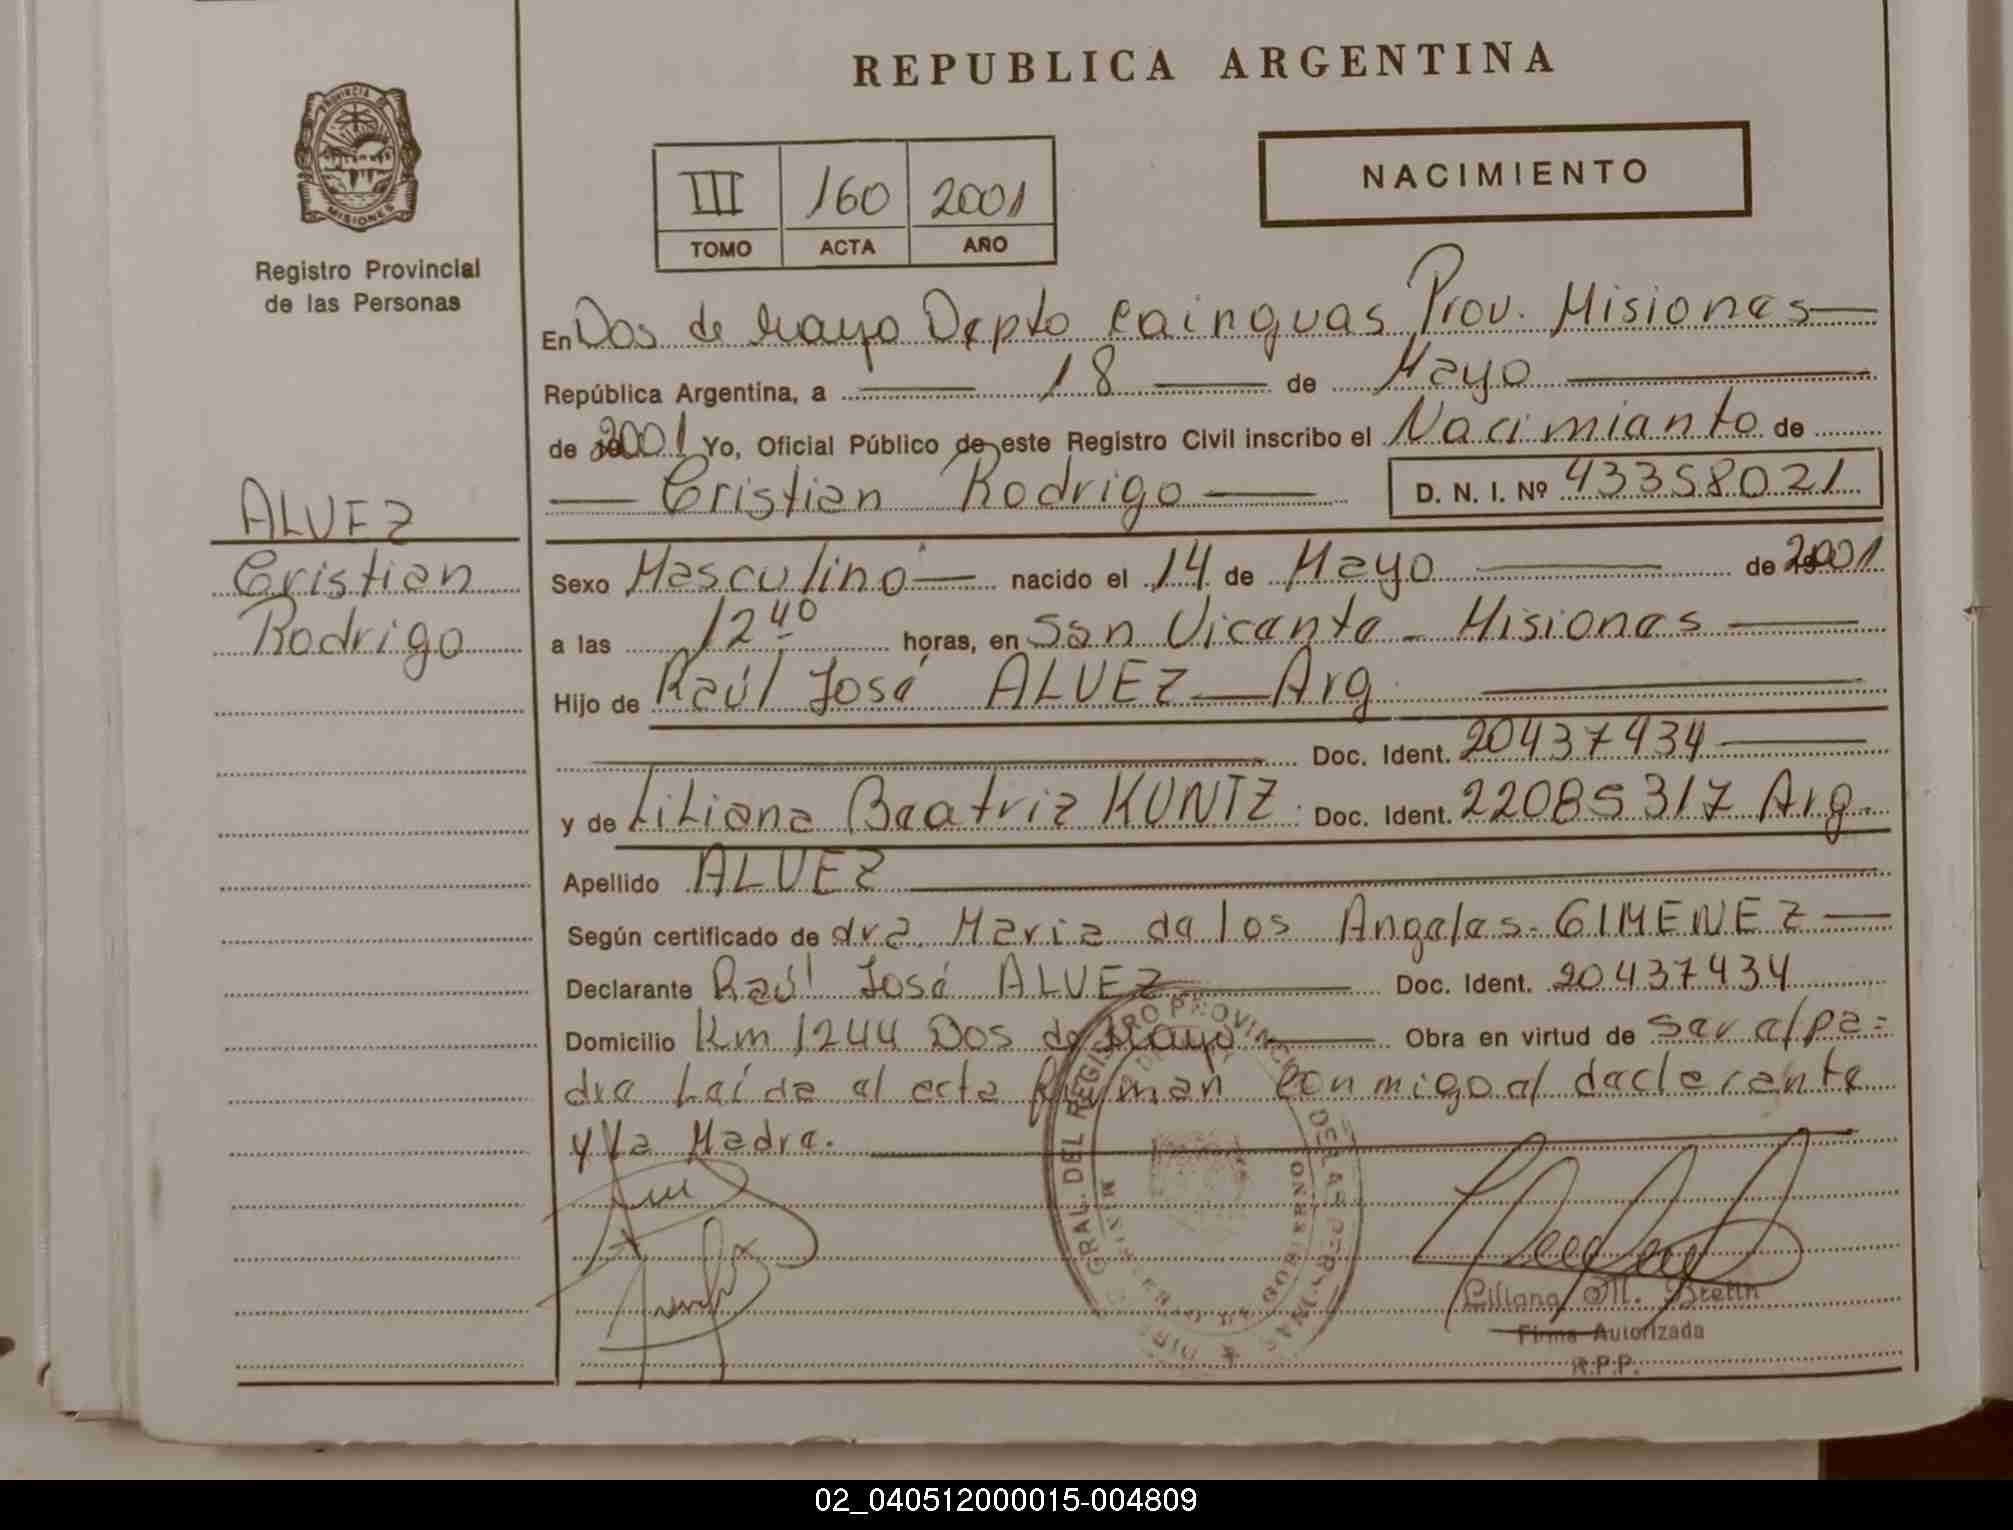 REPUBLICA ARGENTINA
PROVINCIA DE
MISIONES
Registro Provincial
de las Personas
NACIMIENTO
III 160 2001
TOMO ACTA AÑO
En Dos de Mayo Depto Cainguas Prov. Misiones
República Argentina, a 18 de Mayo
de 2001 Yo, Oficial Público de este Registro Civil inscribo el Nacimiento de
Cristian Rodrigo D. N. I. Nº 43358021
ALVEZ
Cristian
Rodrigo
Sexo Masculino nacido el 14 de Mayo de 2001
a las 12 40 horas, en San Vicente - Misiones
Hijo de Raúl José ALVEZ Arg
Doc. Ident. 20437434
y de Liliana Beatriz KUNTZ. Doc. Ident. 22085317 Arg.
Apellido ALVEZ
Según certificado de dra. Maria de los Angeles GIMENEZ
Declarante Raúl José ALVEZ Doc. Ident. 20437434
Domicilio Km 1244 Dos de Mayo Obra en virtud de ser al pa=
dre Leída el acta firman conmigo el declarante
y la Madre.
Liliana M. Bretin
Firma Autorizada
R.P.P.
02_040512000015-004809